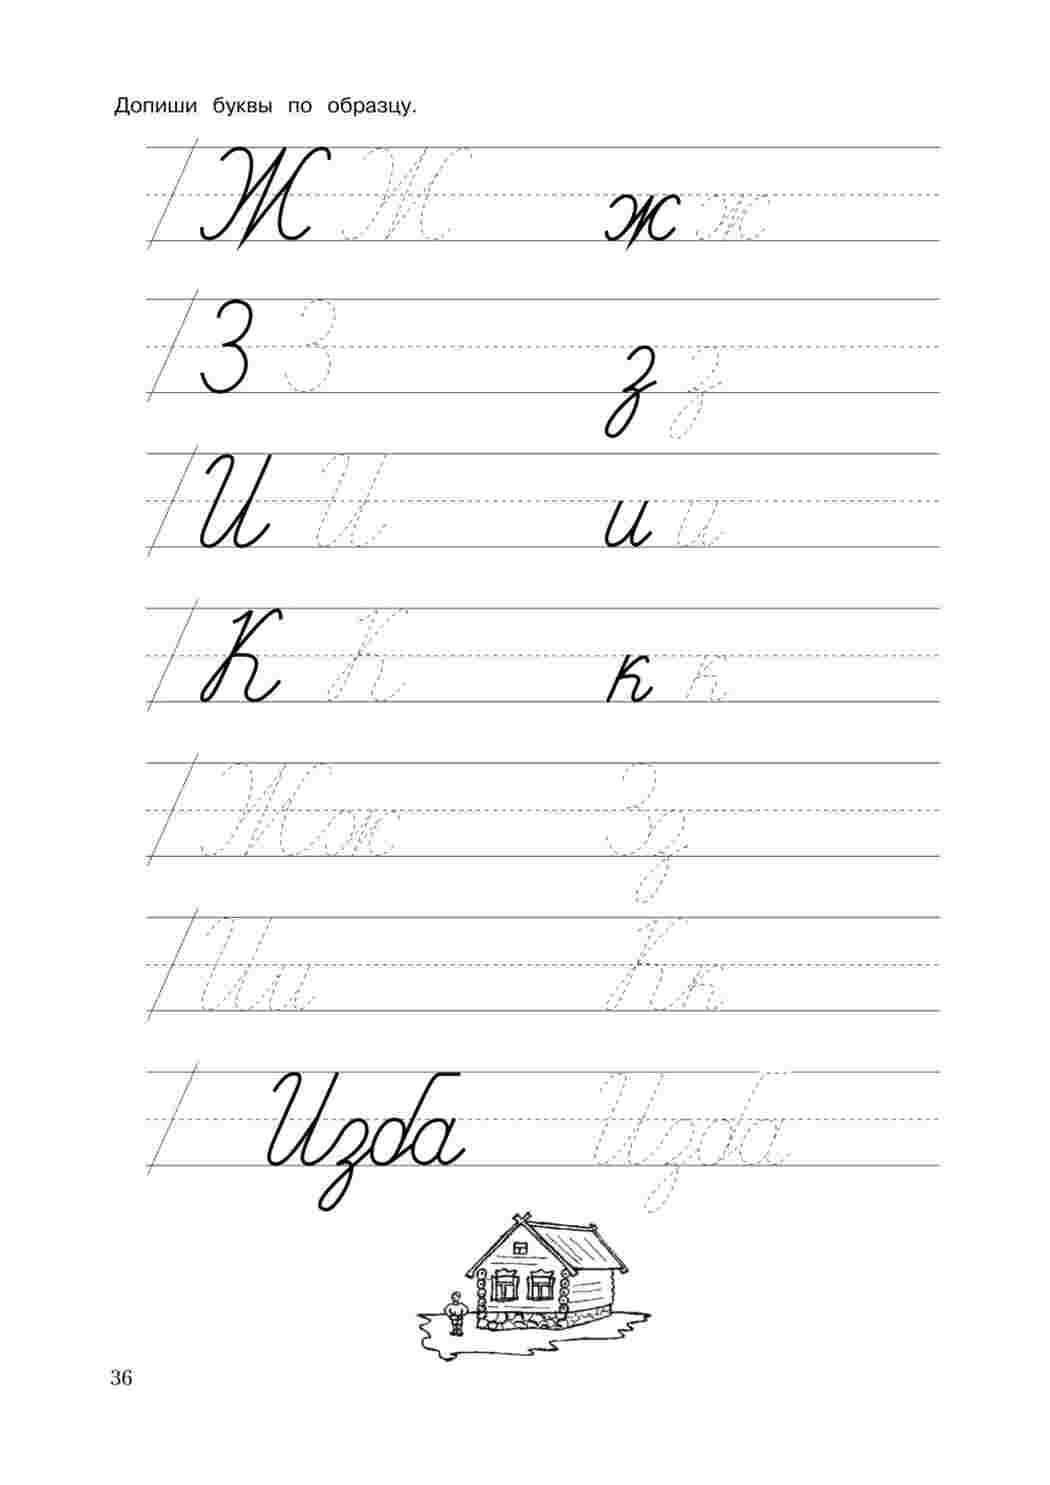 Допиши буквы по образцу.
Ж Ж ж ж
З З з з
И И и и
К К к к
Жж Зз
Ии Кк
Изба Изба
36